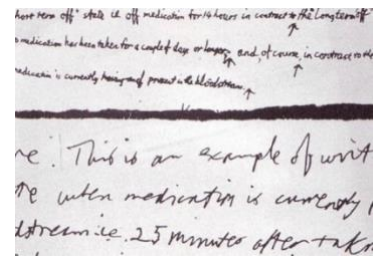 hort term off" state i.e. off medication for 14 hours in contrast to the "long term off
medication has been taken for a couple of days or longer, and, of course, in contrast to the
medication is currently having and present in the bloodstream,
re. This is an example of writ
te when medication is currently
dstream i.e. 25 minutes after takn